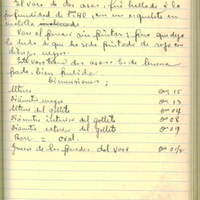 El vaso de dos asas, fué hallado á la
profundidad de 1m40, con un esqueleto en
cuclilla
Vaso al parecer sin pintar; pero que deja
la duda de que ha sido pintado de rojo con
dibujos negros.
Este vaso tiene dos asas. Es de buena
pasta, bien fundido
Dimensiones:
Altura 0m 15
Diámetro mayor 0m 13
Altura del gollete 0m 04
Diámetro interior del gollete 0m 08
Diámetro exterior del gollete 0m 09
Base = oval
Grueso de las paredes del vaso 0m 0½